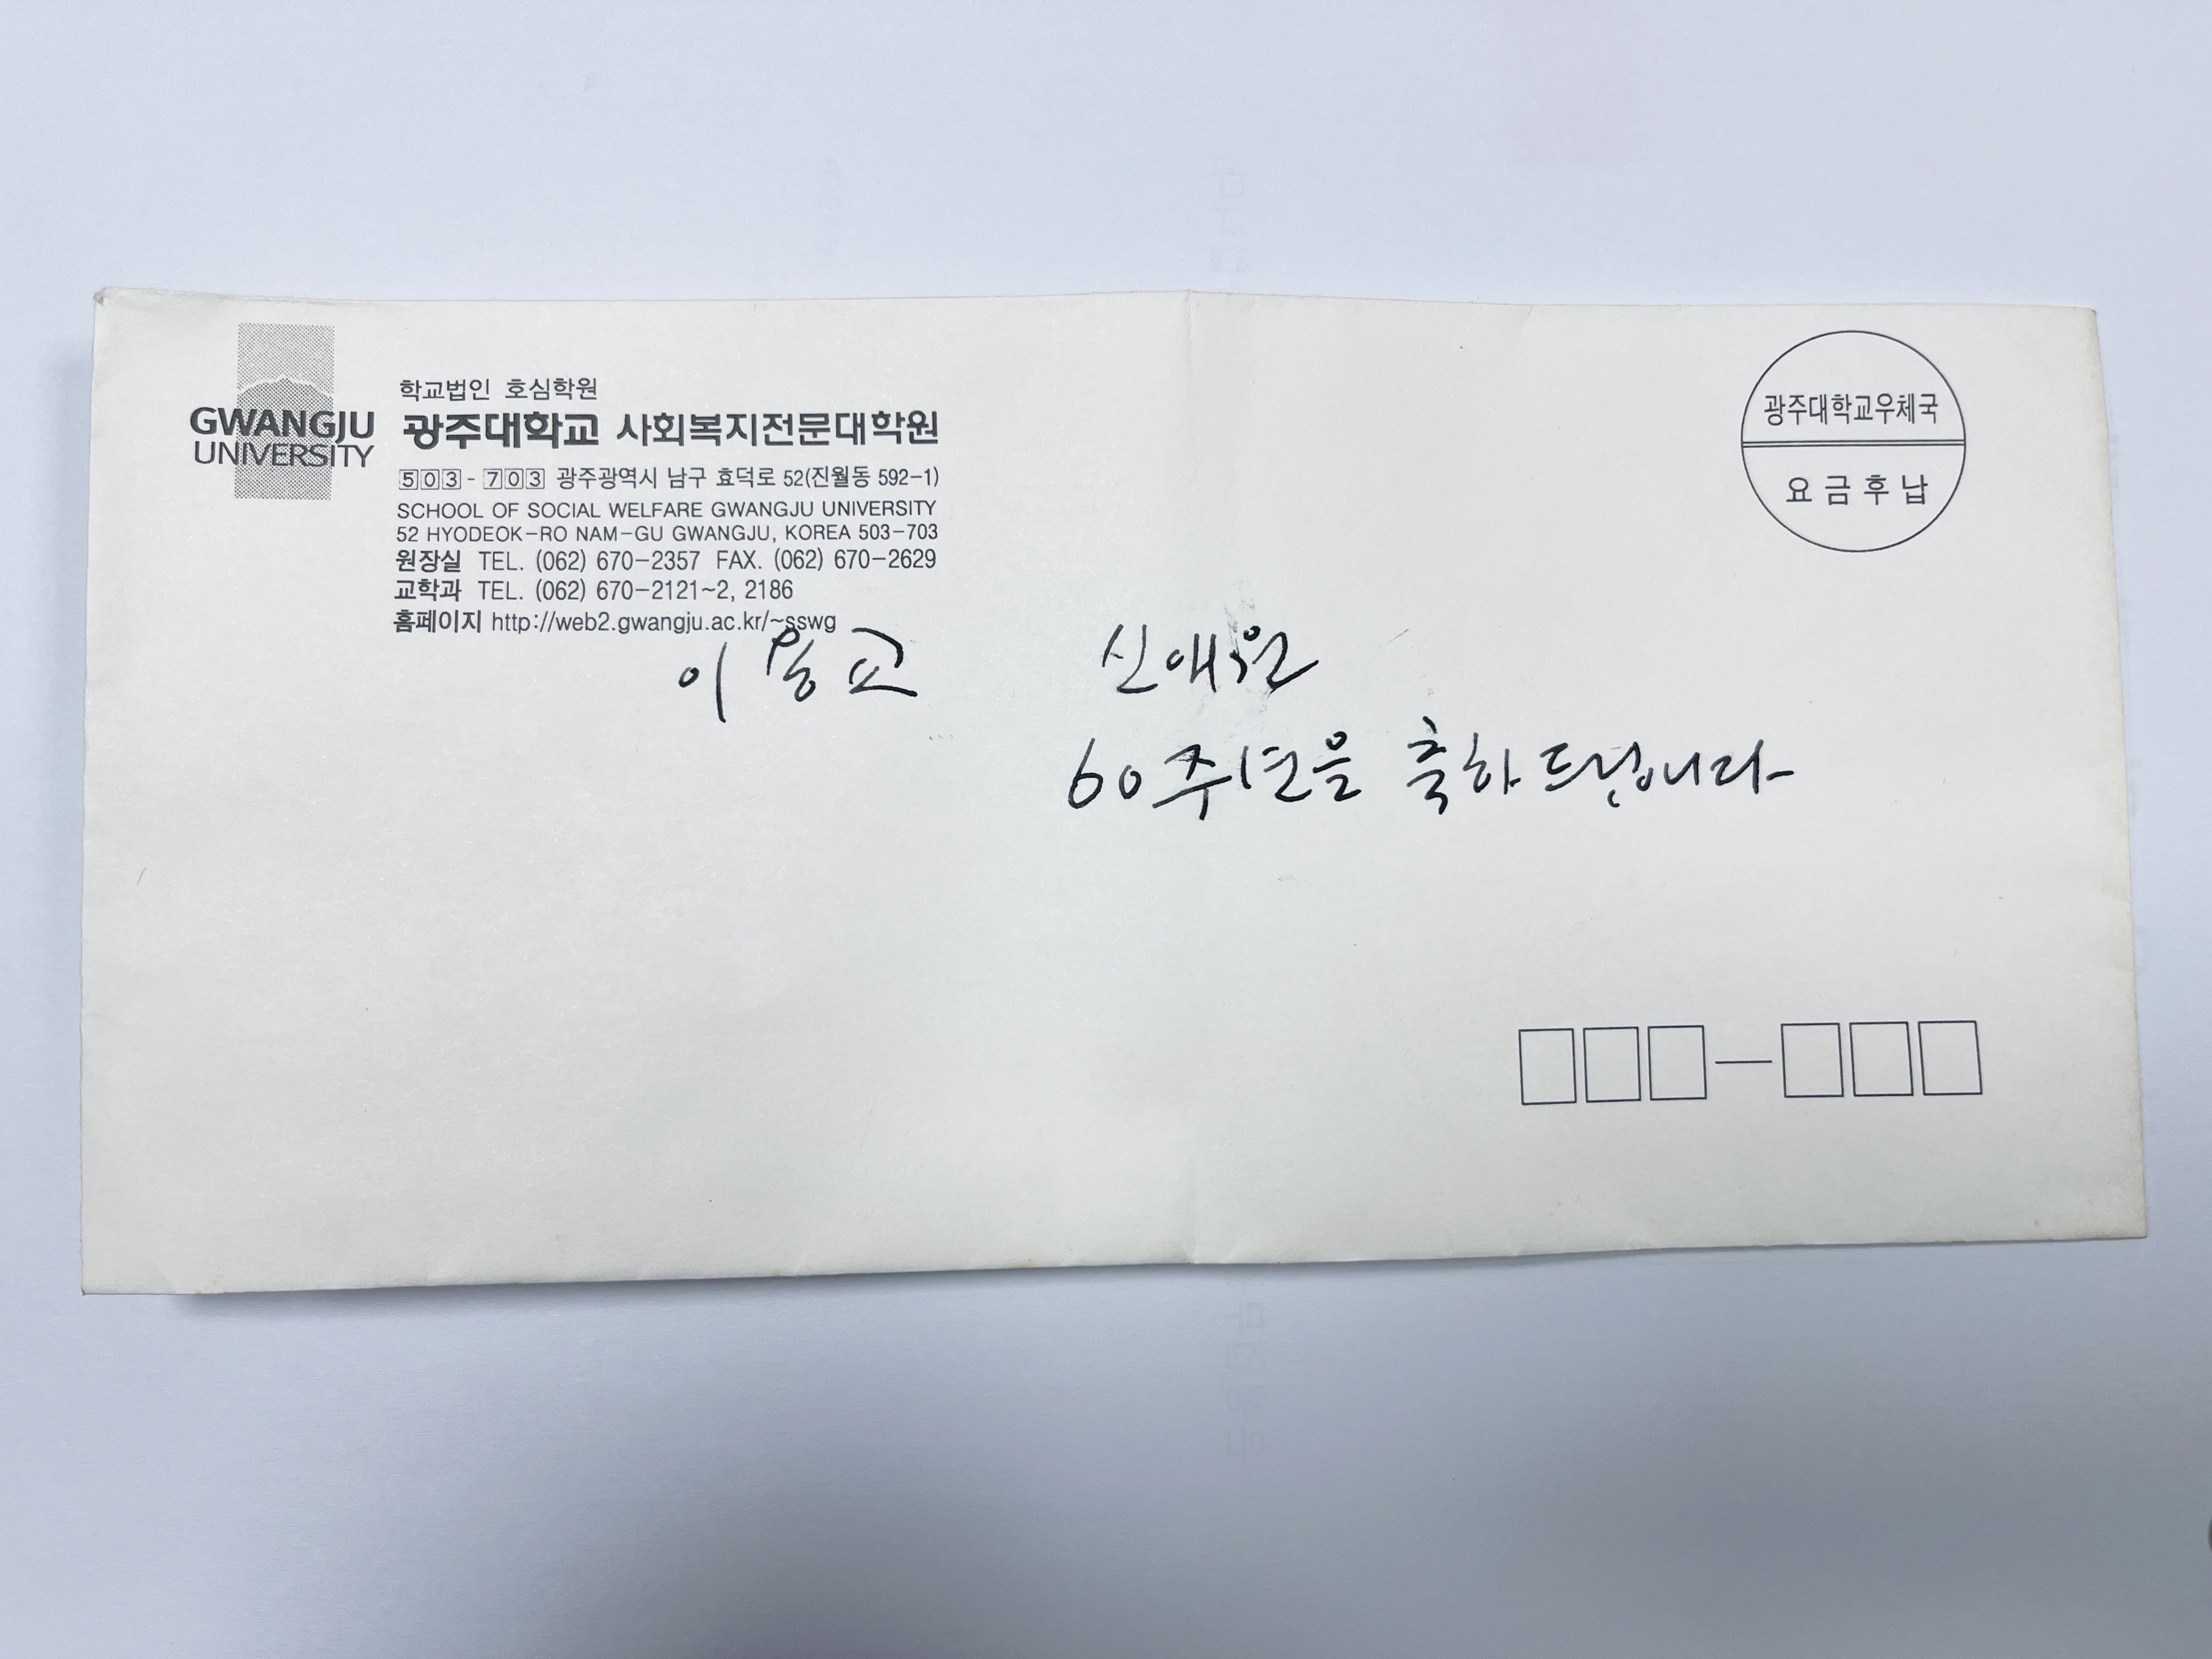 GWANGJU
UNIVERSITY
학교법인 호심학원
광주대학교 사회복지전문대학원
503-703 광주광역시 남구 효덕로 52(진월동 592-1)
SCHOOL OF SOCIAL WELFARE GWANGJU UNIVERSITY
52 HYODEOK-RO NAM-GU GWANGJU, KOREA 503-703
원장실 TEL. (062) 670-2357 FAX. (062) 670-2629
교학과 TEL. (062) 670-2121~2, 2186
홈페이지 http://web2.gwangju.ac.kr/~sswg
광주대학교우체국
요금후납
이용교
신애원
60주년을 축하드립니다